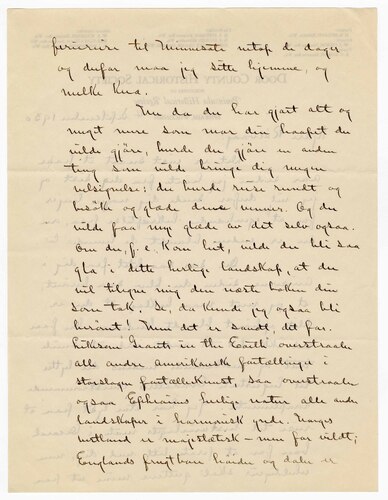 ferierejse til Minnesota netop de dager
og derfor maa jeg sitte hjemme, og
melke Kua.
Nu da du har gjørt alt og
meget mere som mor din haabet du
vilde gjøre, burde du gjøre en anden
ting som vilde bringe dig megen
velsignelse: du burde reise rundt og
besøke og glæde dine venner. Og du
vilde faa megen glæde av det selv ogsaa.
Om du, f. e. Kom hit, vilde du bli saa
gla i dette herlige landskap, at du
vil tilegne mig den neste boken din
som tak. Se, da kunde jeg ogsaa bli
berømt! Men det er sandt, det før.
Likesom Giants in the Earth overstraaler
alle andre Amerikanske fortællinger i
storslagen fortællekunst, saa overstraaler
ogsaa Ephraims herlige natur alle andre
landskaper i harmonisk ynde. Norges
vestland er majestetisk - men for vildt;
Englands frugtbare høider og daler er
DOOR COUNTY HISTORICAL SOCIETY